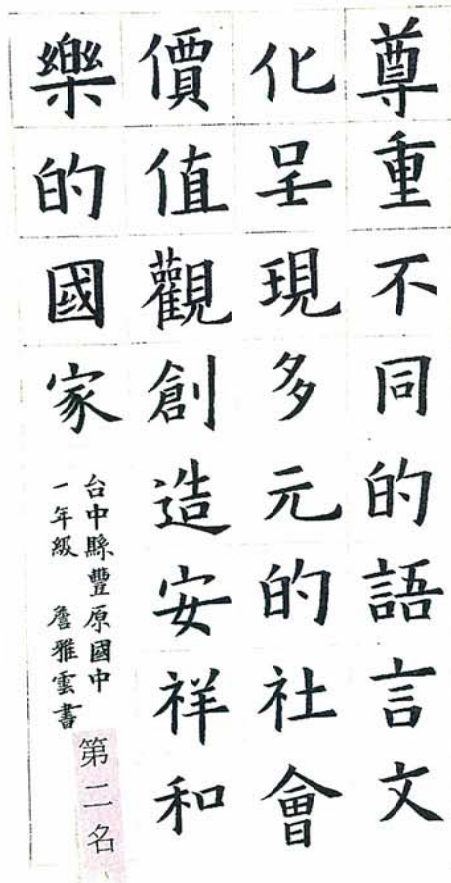 尊重不同的語言文
化呈現多元的社會
價值觀創造安祥和
樂的國家
台中縣豐原國中
一年級 詹雅雲書
第二名